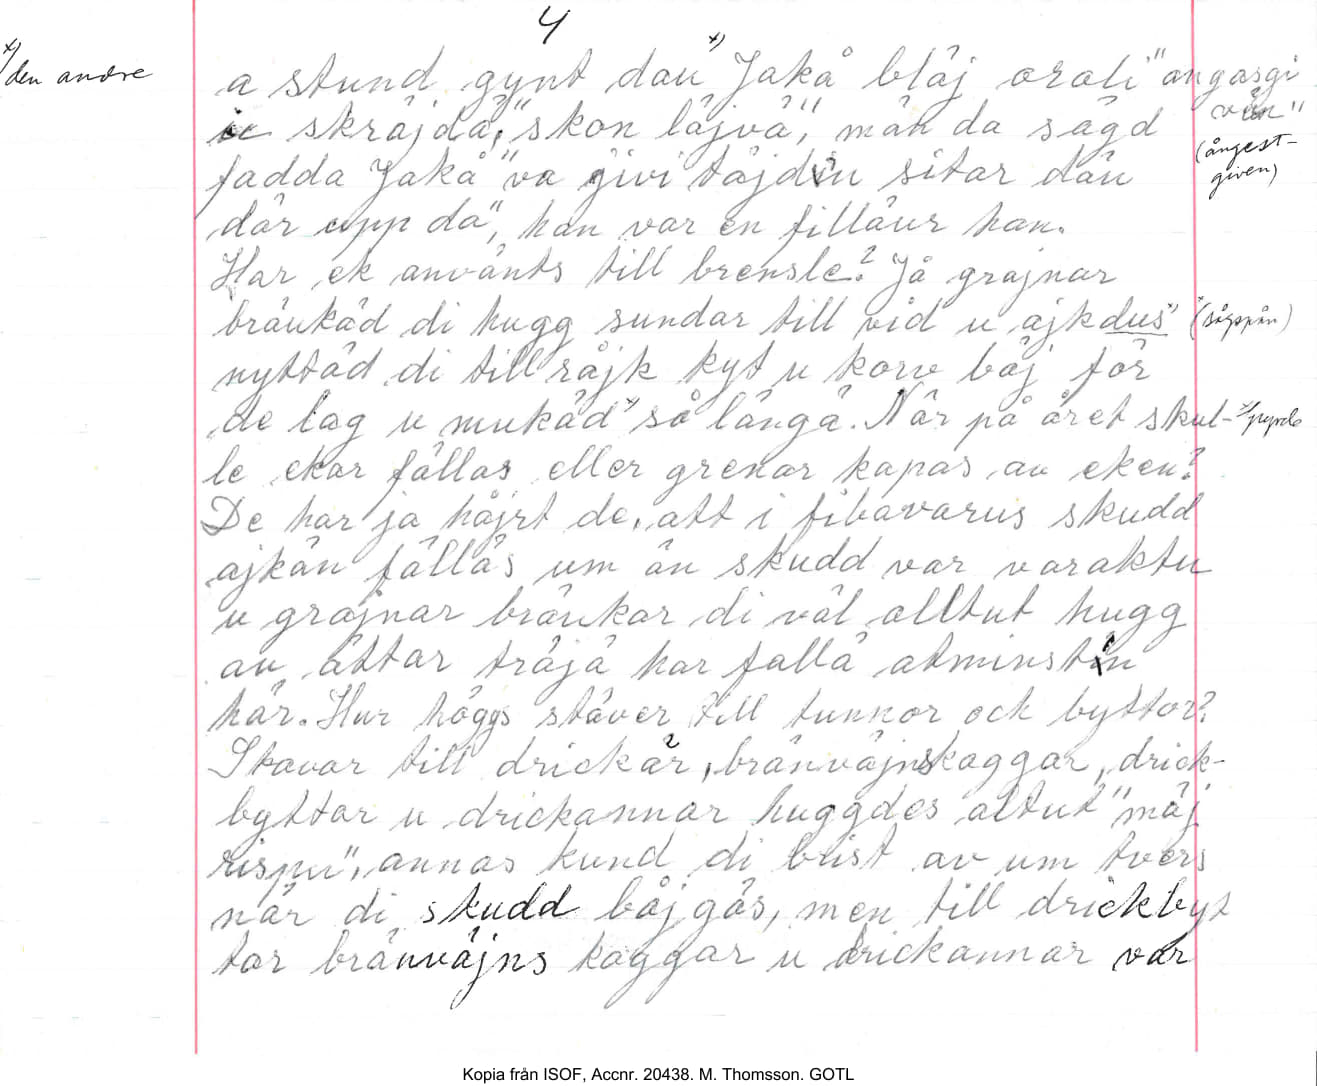 4
x) den andre
a stund gynt dån x) Jakå blåj oroli "angasgi
vän"
i skräjdä, "skon läjvä", män da sägd
(ångest-
given)
fadda Jakå "va givi täjdin sitar dån
där upp då", han var en fillåur han.
Har ek använts till brensle? Jå grajnar
bräukäd di hugg sundar till vid u ajkdus" x) (sågspån)
nyttäd di till råjk kyt u korv båj för
de lag u mukäd x) så längä. När på året skul-
le ekar fällas eller grenar kapas av eken?
De har ja håjrt de, att i fibavarus skudd
ajkän fälläs um än skudd var varaktu
u grajnar bräukar di väl alltut hugg
av ättar träjä har fallä atminstin
här. Hur höggs stäver till tunnor och byttor?
Stavar till drickår, bränväjnskaggar, drick-
byttar u drickannar huggdes altut "mäj
rispu", annas kund di brist av um tvers
när di skudd båjgäs, men till drickbyt
tar bränväjns kaggar u drickannar var
Kopia från ISOF, Accnr. 20438. M. Thomsson. GOTL